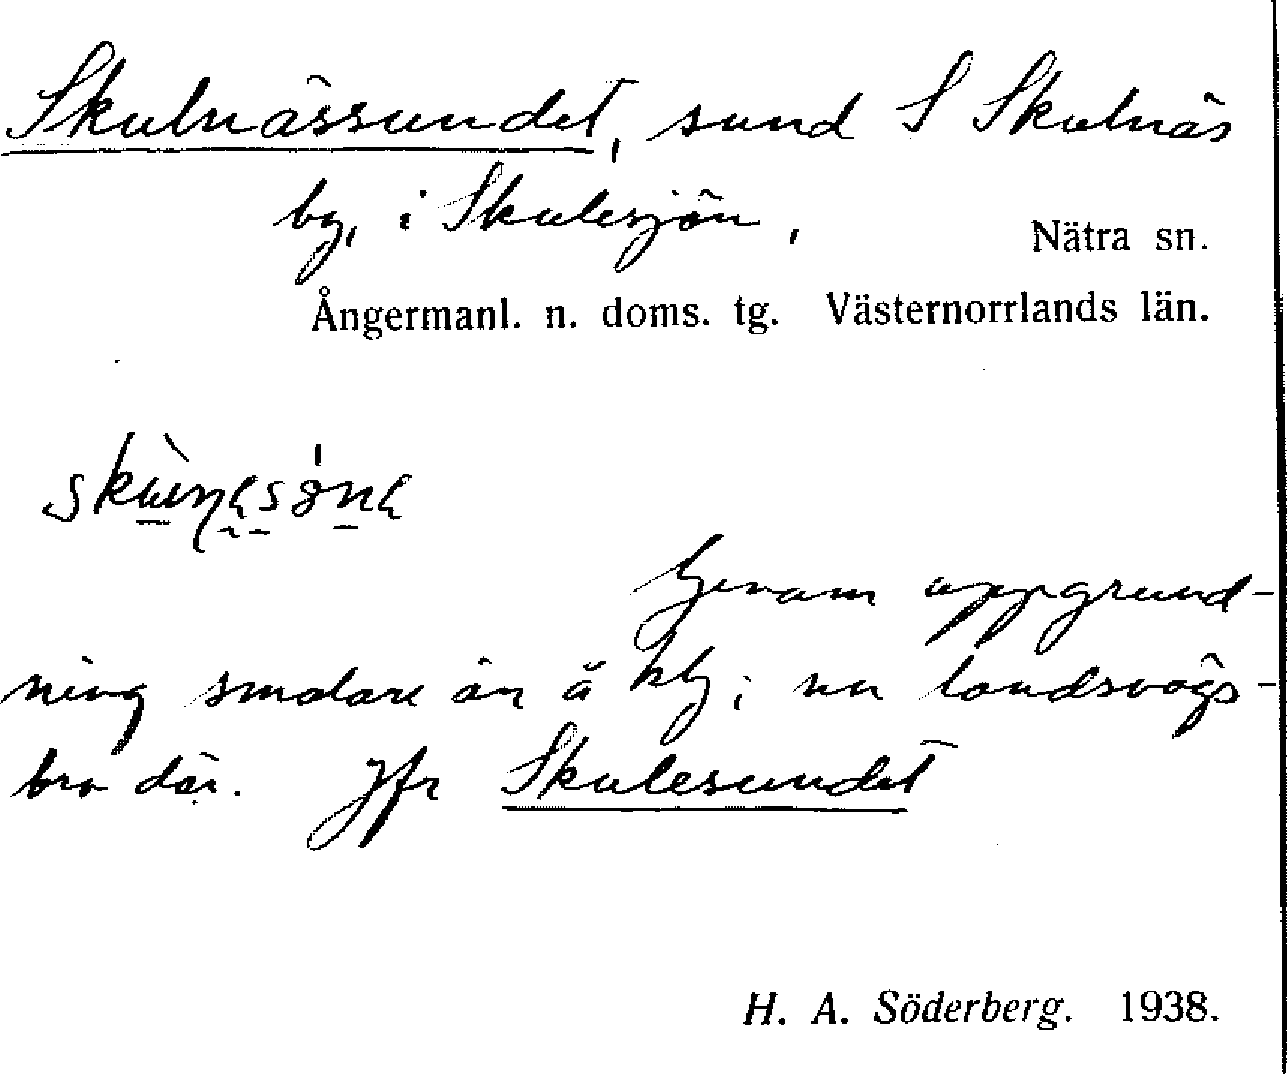 Skulnässundet, sund S Skulnäs
by, i Skulesjön,
Nätra sn.
Ångermanl. n. doms. tg. Västernorrlands län.
Genom uppgrund-
ning smalare än å; nu landsvägs-
bro där. Jfr Skulesundet
H. A. Söderberg. 1938.